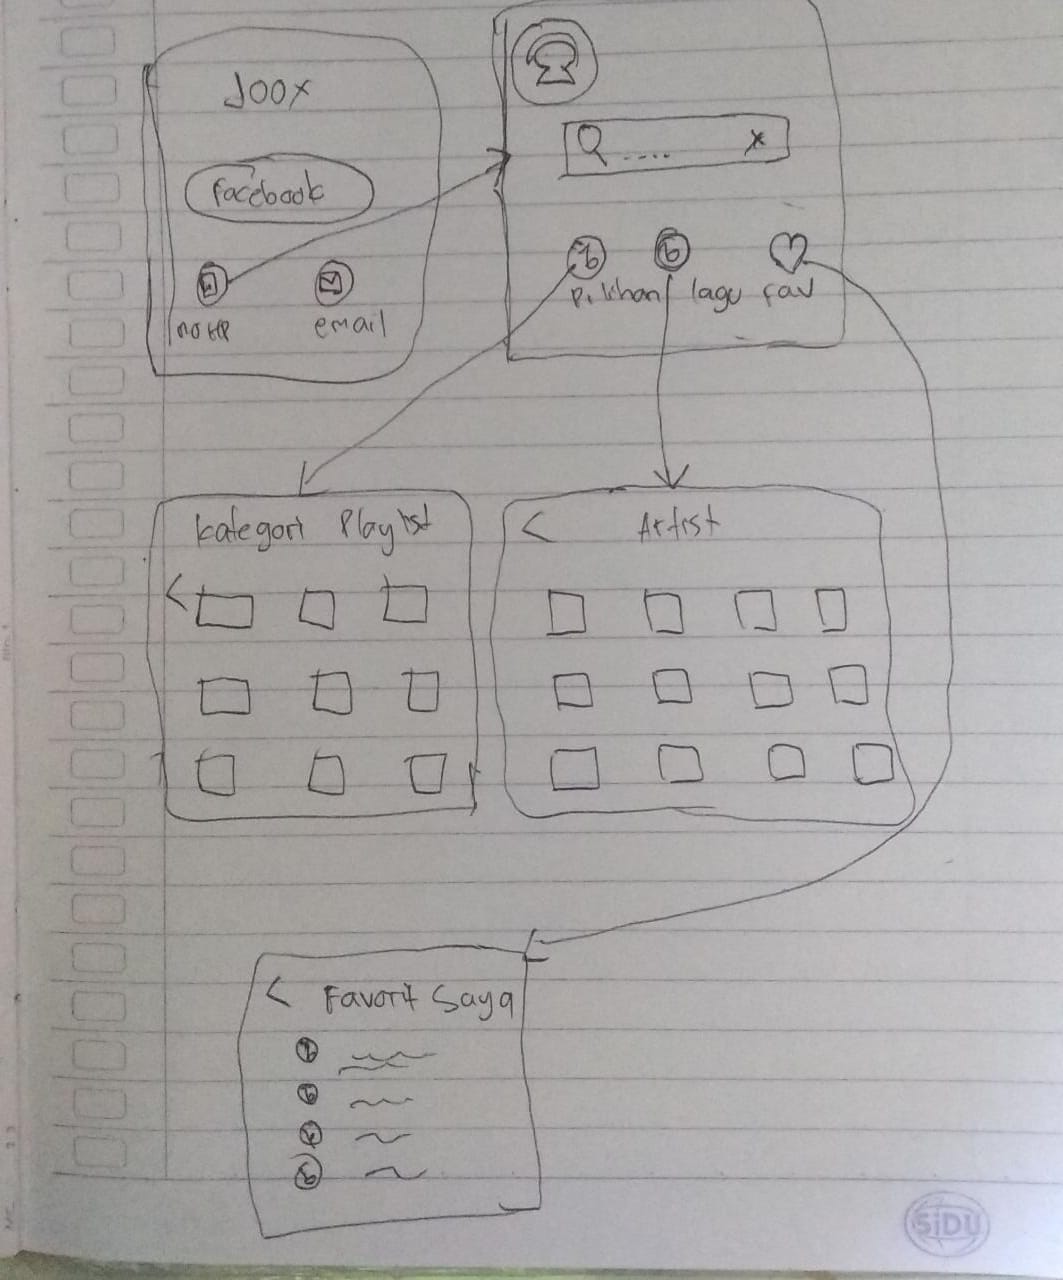 JOOX
facebook
no HP
email
....
x
Pilihan lagu fav
Kategori Playlist
<
< Artist
< Favorit Saya
SiDU